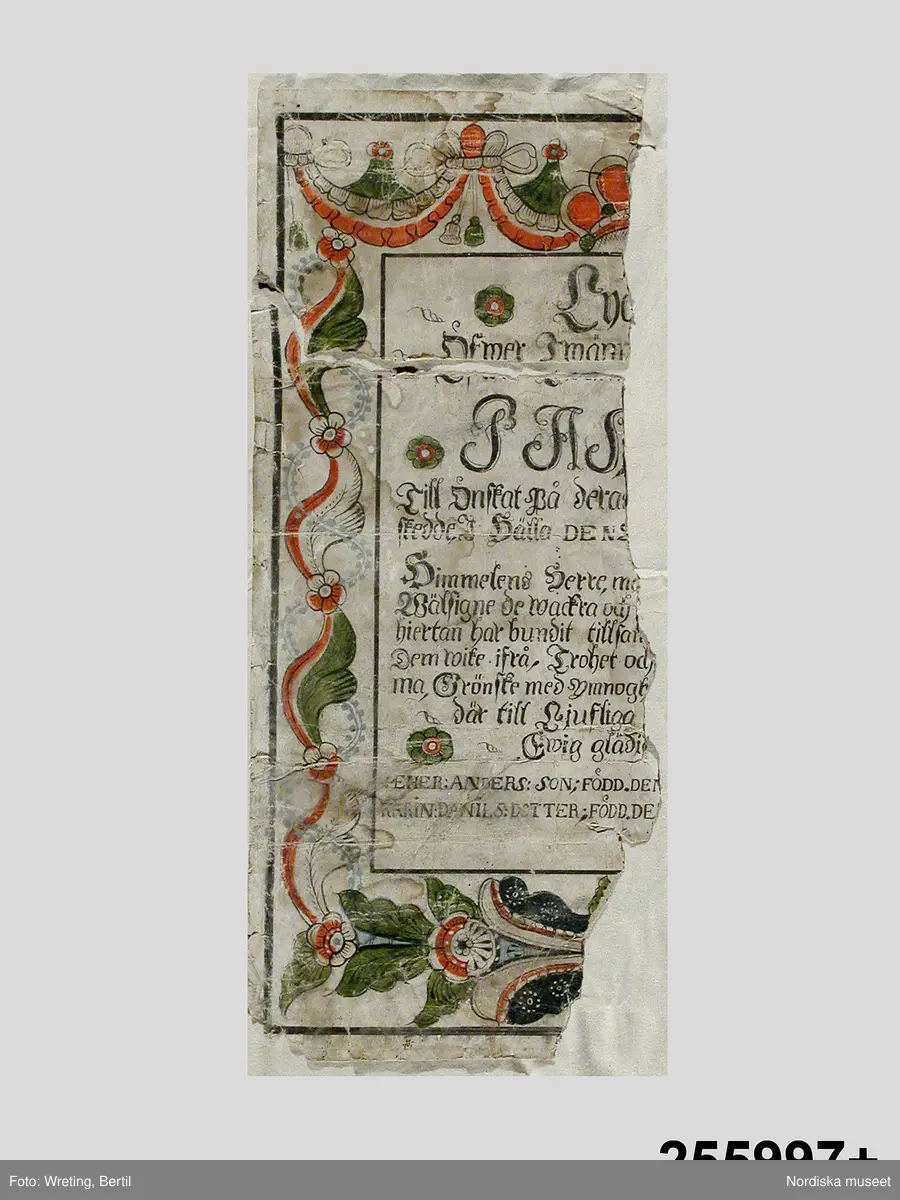 Lyc
Öfwer Imäm
P A S
Till Önskat på deras
skedde I Hälla DEN 2
Himmelens Herre, me
Wälsigne de wackra
hiertan har bundit tillsam
Dem wike ifrå, Trohet och
ma, Grönske med ymnogh
där till Ljufliga
Ewig glädie
PEHER: ANDERS: SON; FÖDD. DEN
KARIN: DANILS: DOTTER; FÖDD. DE
255997+
Foto: Wreting, Bertil
Nordiska museet